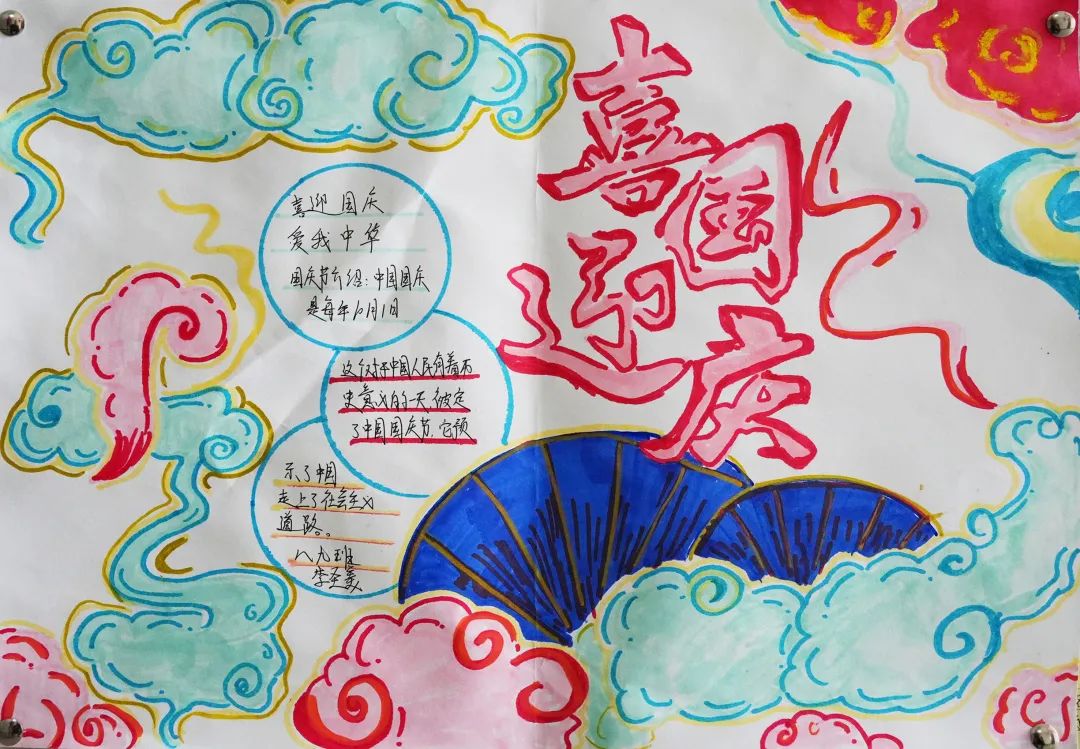 喜迎
国庆
喜迎国庆
爱我中华
国庆节介绍:中国国庆
是每年10月1日
这个对于中国人民有着历
史意义的一天,被定
了中国国庆节,它预
示了中国
走上了社会主义
道路。。
八九班
李圣